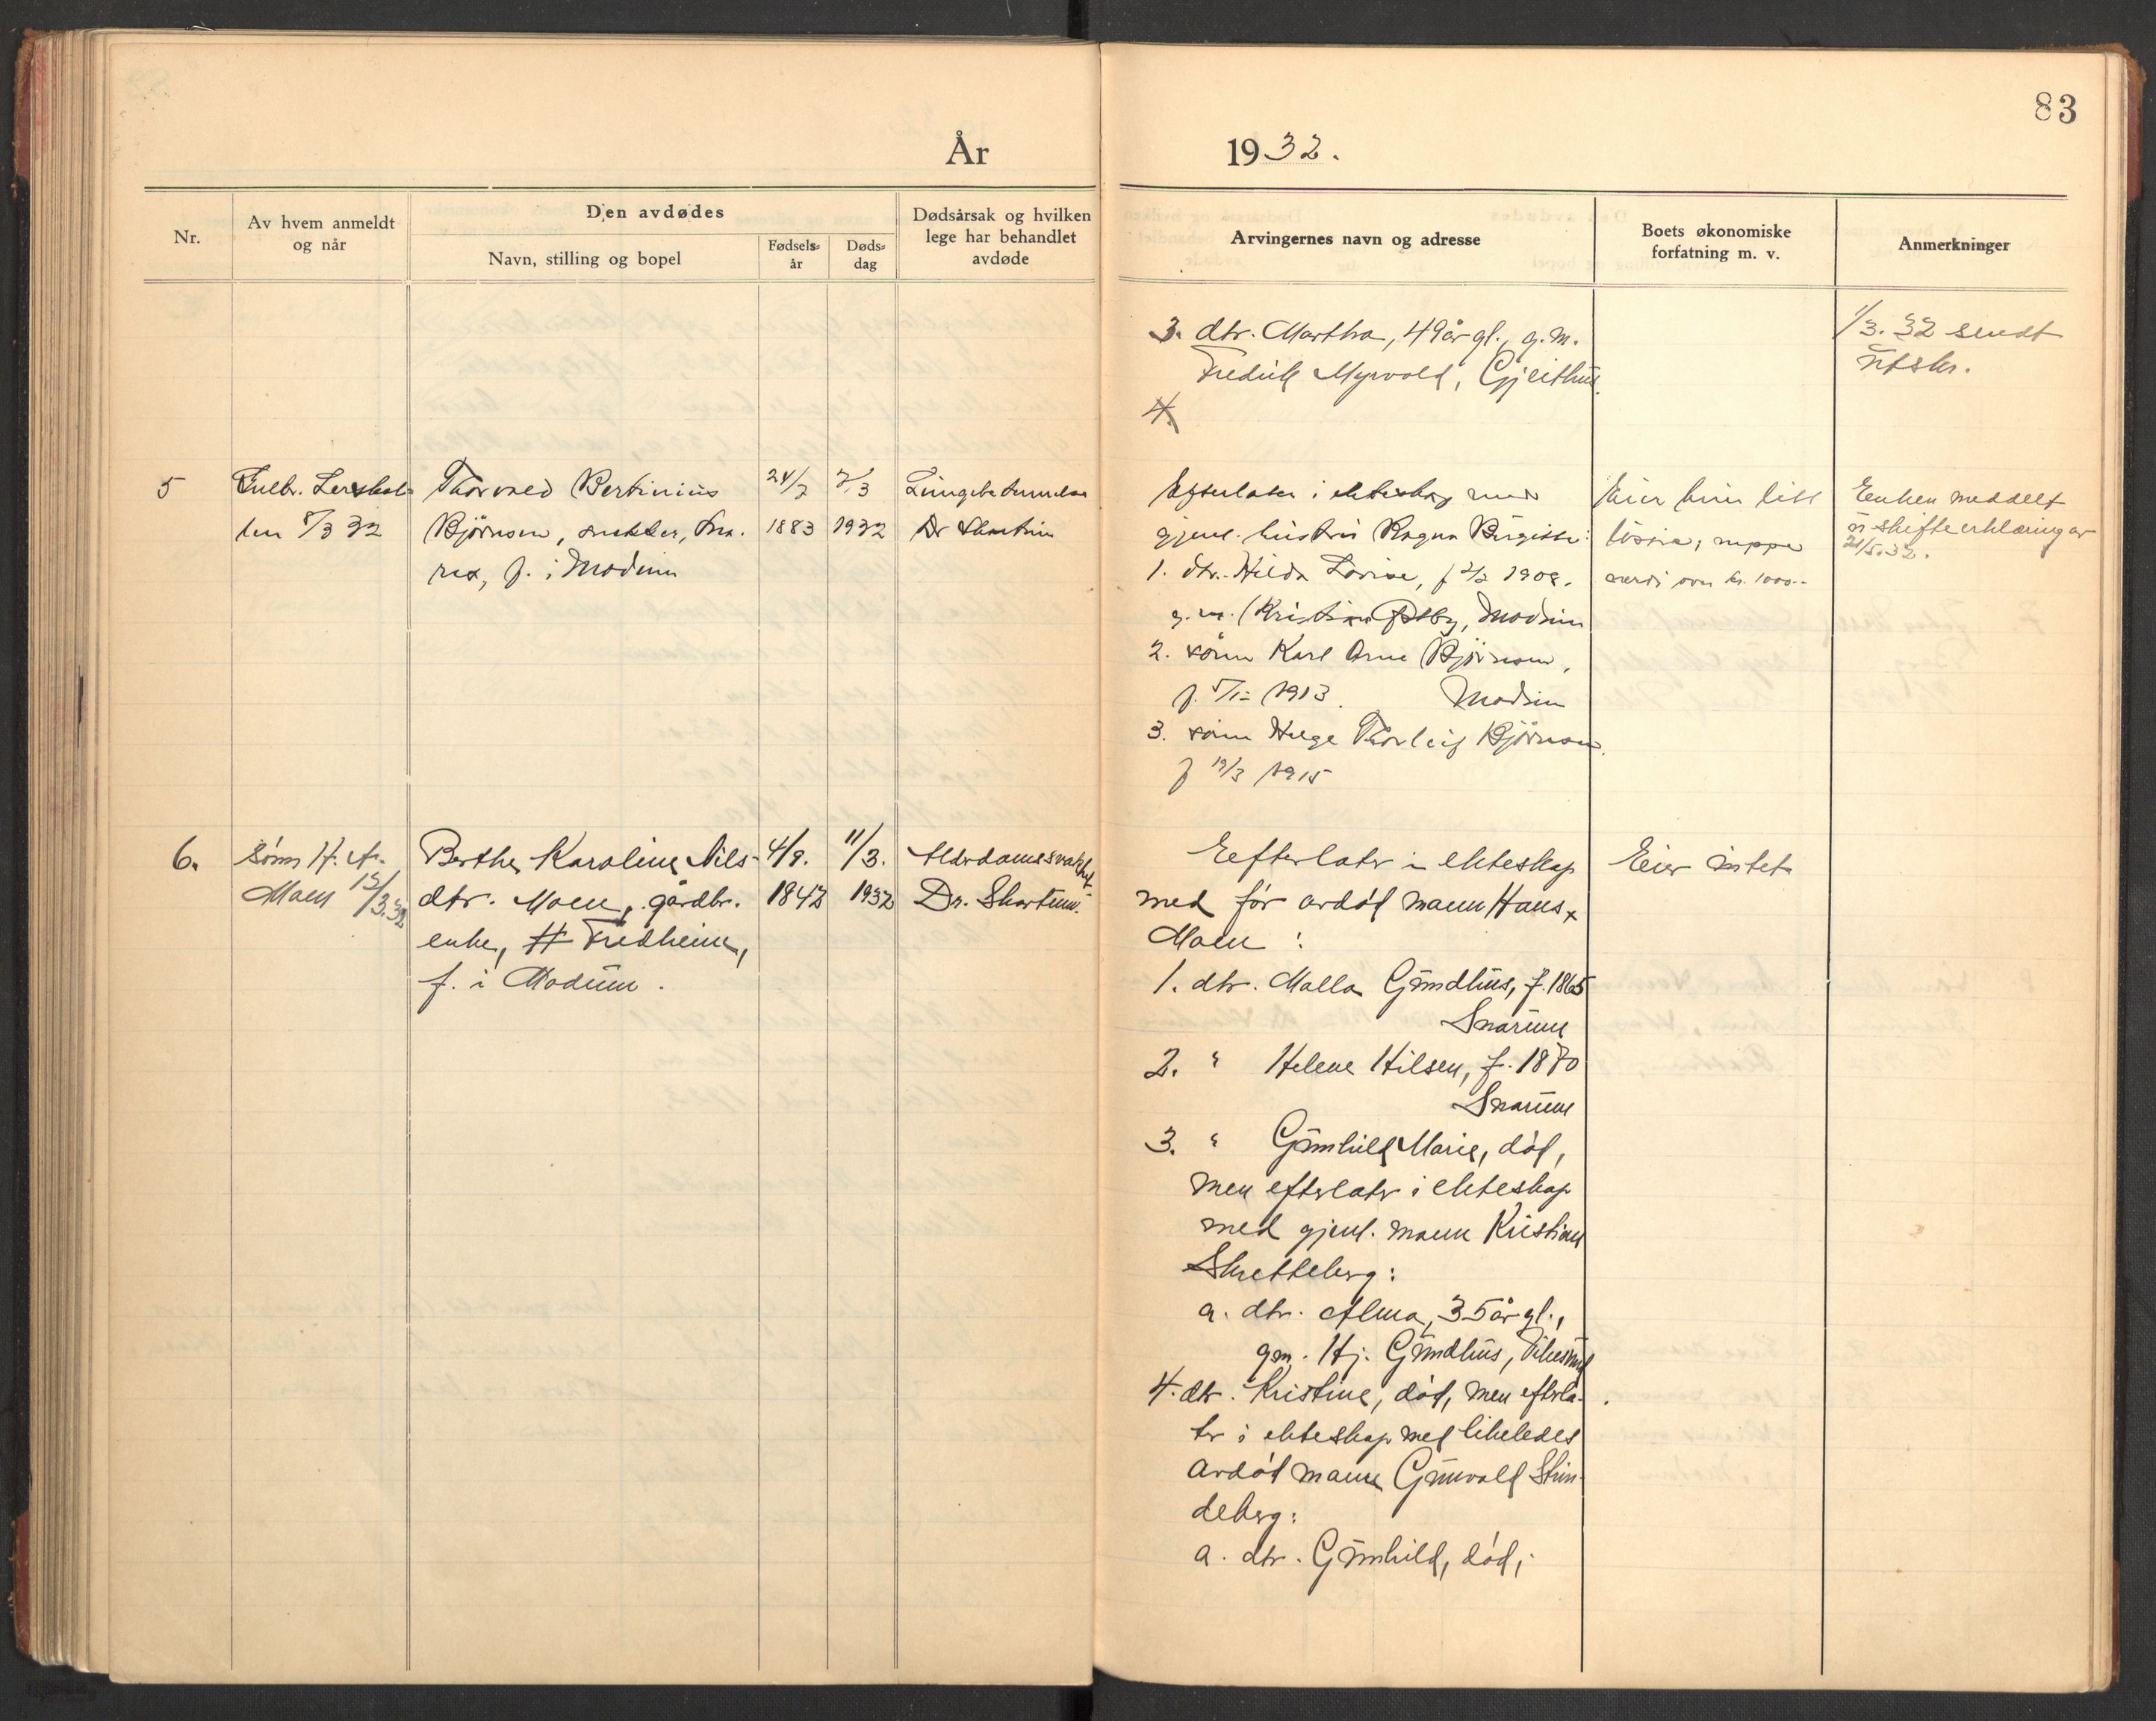 83
År
1932.
Nr.
Av hvem anmeldt
og når
Den avdødes
Navn, stilling og bopel
Fødsels-
år
Døds-
dag
Dødsårsak og hvilken
lege har behandlet
avdøde
Arvingernes navn og adresse
Boets økonomiske
forfatning m. v.
Anmerkninger
3. dtr. Martha, 49 år gl., g. m.
Fredrik Myrvold, Gjeithus.
4.
1/3. 32 sendt
utskr.
5
ten 8/3 32
Thorvald Bertinius
Bjørnson, snekker,
f. i Modum
24/7
1883
7/3
1932
Lungebetennelse
Dr Skartum
Efterlater i ekteskap med
gjenl. hustru Ragna Birgitte:
1. dtr. Hilda Lovise, f 2/2 1908.
g. m. Kristian Østby, Modum
2. sønn Karl Arne Bjørnson,
f. 5/12 1913. Modum
3. sønn Helge Thorleif Bjørnson.
f 19/3 1915
Eier kun litt
løsøre, neppe
verdi over kr. 1000.-
Enken meddelt
skifteerklæring av
21/5.32.
6.
Sønn H. A.
Moen 12/3.32
Berthe Karoline Nils-
dtr. Moen, gårdbr.
enke, Fredheim,
f. i Modum.
4/9.
1842
11/3.
1932
Alderdomssvakhet
Dr. Skartum.
Eefterlatr i ekteskap
med før avdød mann Hans
Moen :
1. dtr. Malla Gundhus, f. 1865
Snarum
2. " Helene Hilsen, f. 1870
Snarum
3. " Gunhild Marie, død,
men efterlatr i ekteskap
med gjenl. mann Kristian
Skretteberg:
a. dtr. Alma, 35 år gl.,
gm. Hj. Gundhus, Vikersund
4. dtr. Kristine, død, men efterla-
tr i ekteskap med likeledes
avdød mann Gunvald Skin-
deberg:
a. dtr. Gunhild, død,
Eier intet